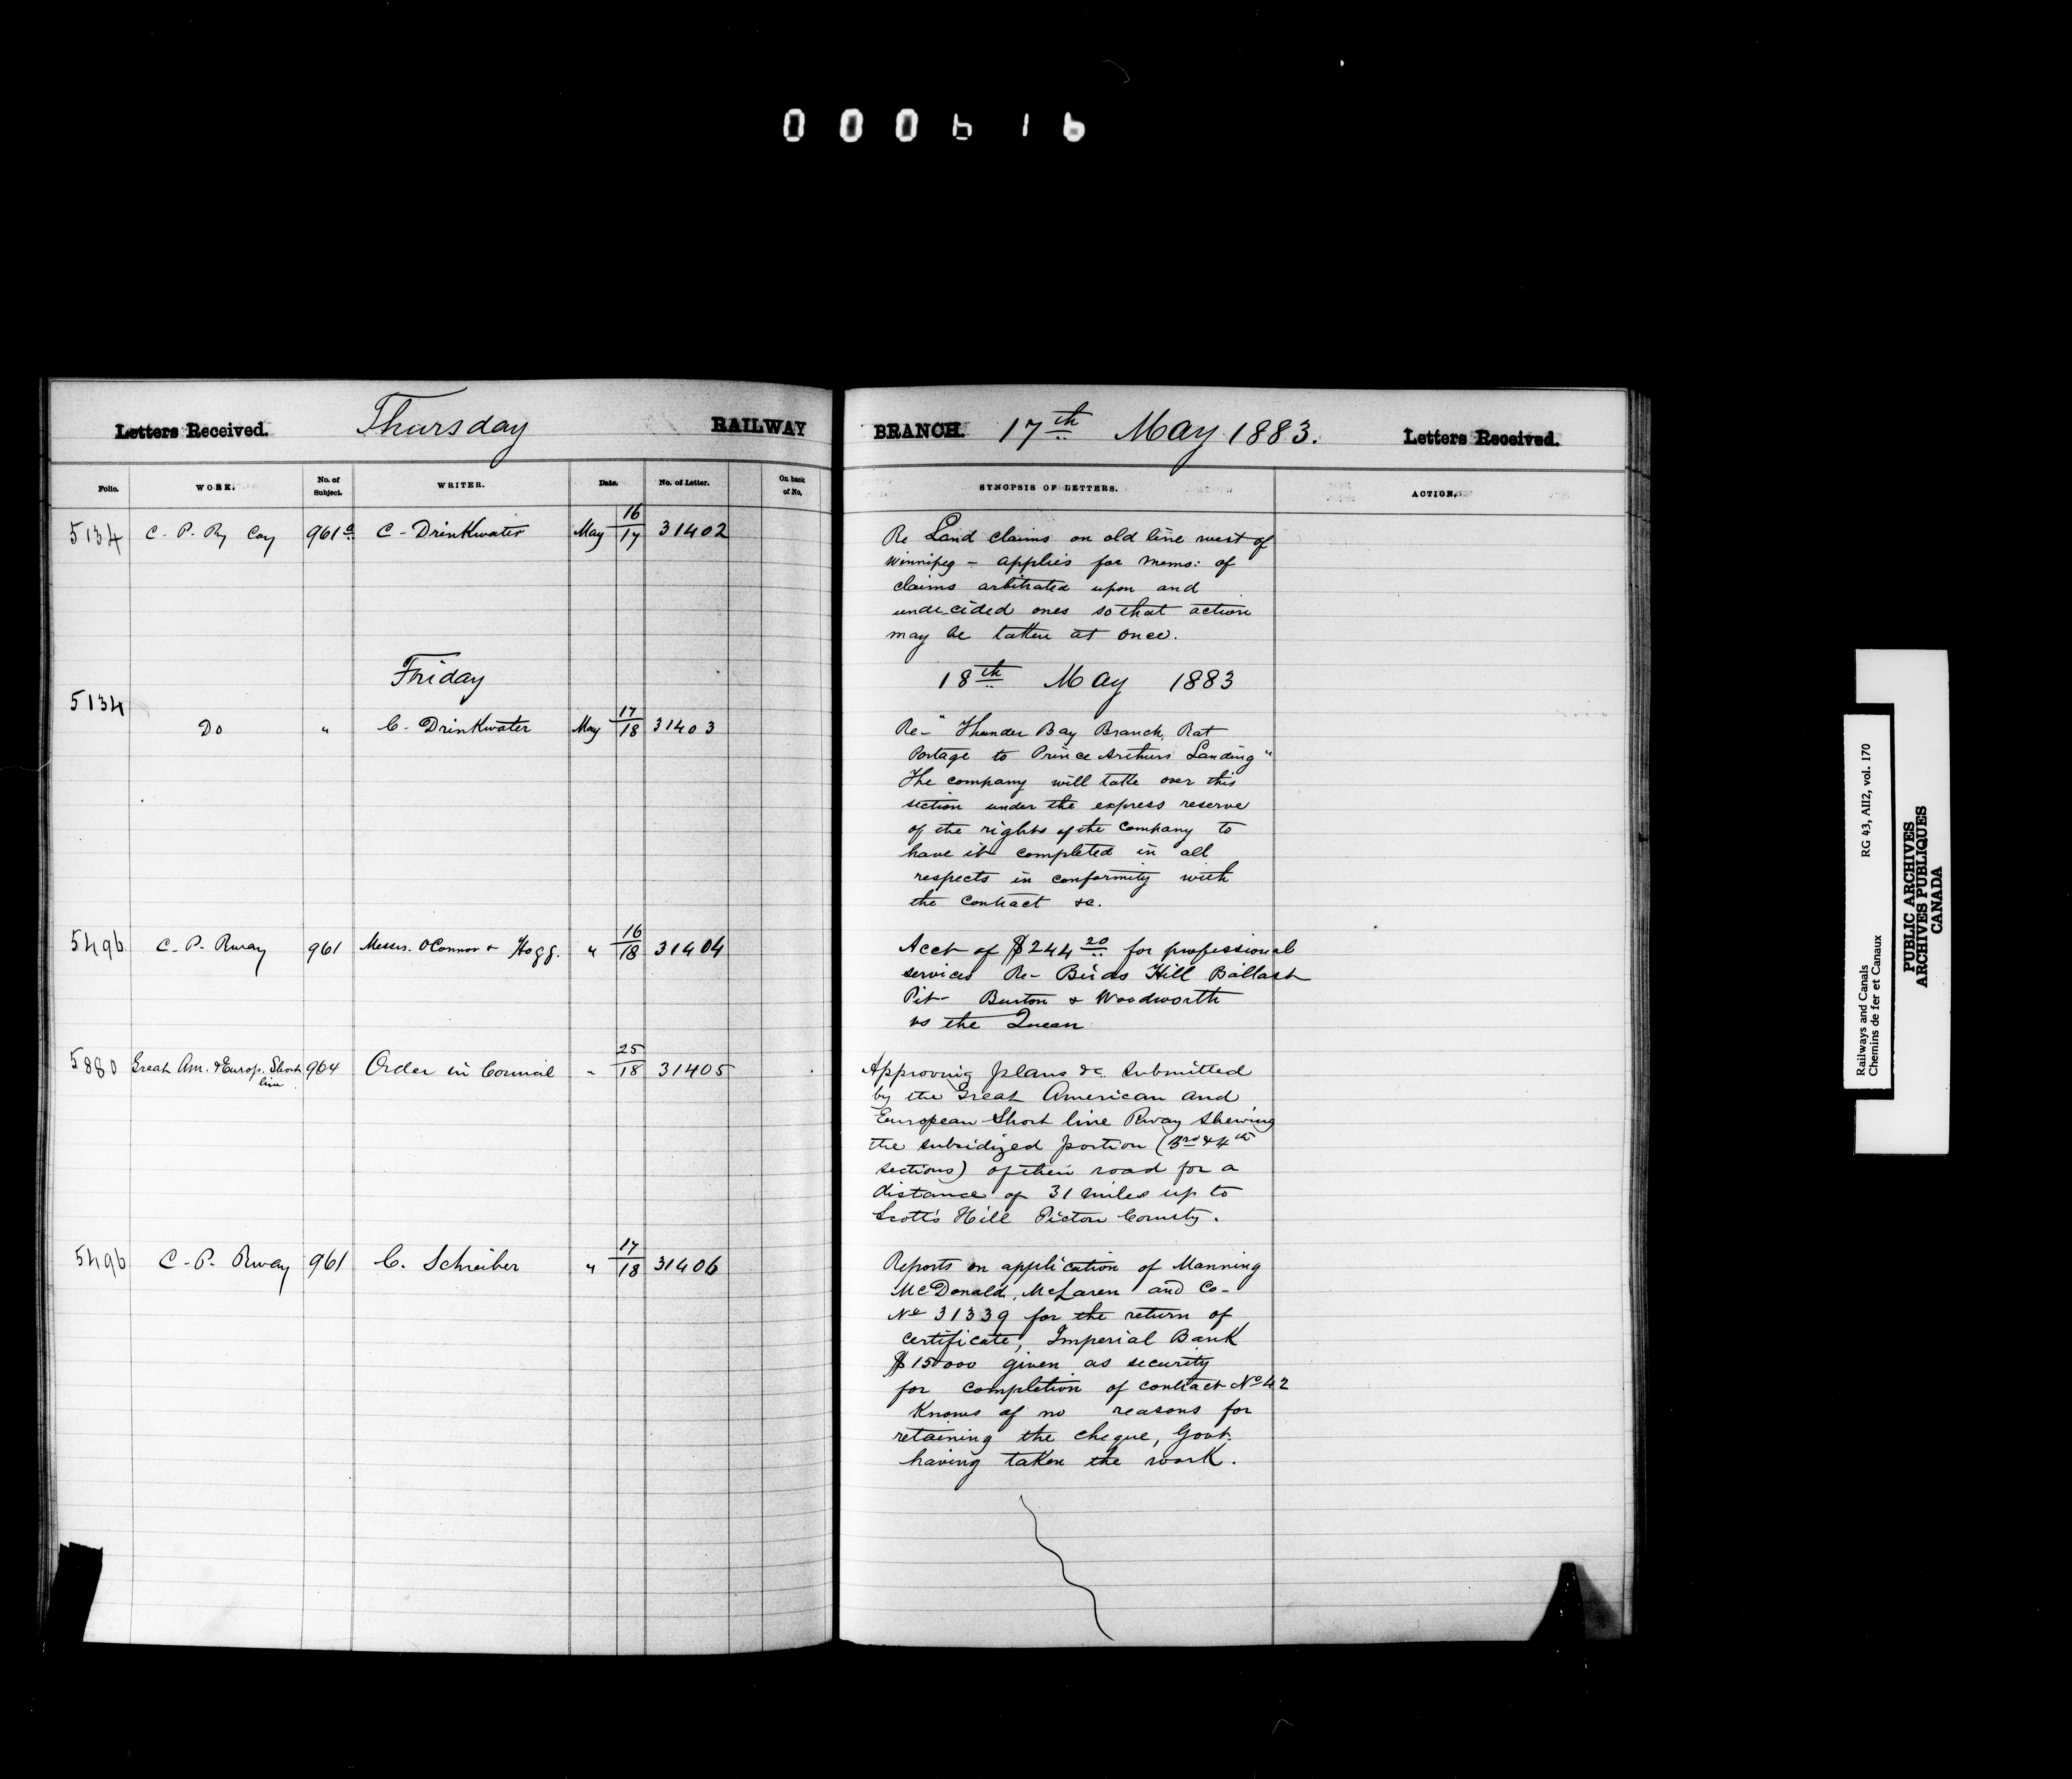 000616
Letters Received. Thursday RAILWAY BRANCH. 17th May 1883. Letters Received.
Folio. WORK. No. of Subject. WRITER. Date. No. of Letter. On back of No. SYNOPSIS OF LETTERS. ACTION.
5134 C. P. Ry Coy 961a C. Drinkwater May 16/17 31402
Re Land claims on old line west of
Winnipeg - applies for memo: of
claims arbitrated upon and
undecided ones so that action
may be taken at once.
Friday 18th May 1883
5134 Do " C. Drinkwater May 17/18 31403
Re- "Thunder Bay Branch, Rat
Portage to Prince Arthurs Landing"
The company will take over this
section under the express reserve
of the rights of the Company to
have it completed in all
respects in conformity with
the Contract &c.
5496 C. P. Rway 961 Messrs. O'Connor & Hogg. " 16/18 31404
Acct of $244 20 for professional
services Re- Birds Hill Ballast
Pit- Burton & Woodworth
vs the Queen
5880 Great Am. & Europ. Short line 964 Order in Council " 25/18 31405
Approving plans &c. submitted
by the Great American and
European Short line Rway shewing
the subsidized portion (3rd & 4th
sections) of their road for a
distance of 31 miles up to
Scott's Hill Pictou County.
5496 C. P. Rway 961 C. Schreiber " 17/18 31406
Reports on application of Manning
McDonald, McLaren and Co-
No 31339 for the return of
certificate, Imperial Bank
$15000 given as security
for completion of contract No 42
Knows of no reasons for
retaining the cheque, Govt.
having taken the work.
Railways and Canals RG 43, AII2, vol. 170
Chemins de fer et Canaux
PUBLIC ARCHIVES
ARCHIVES PUBLIQUES
CANADA